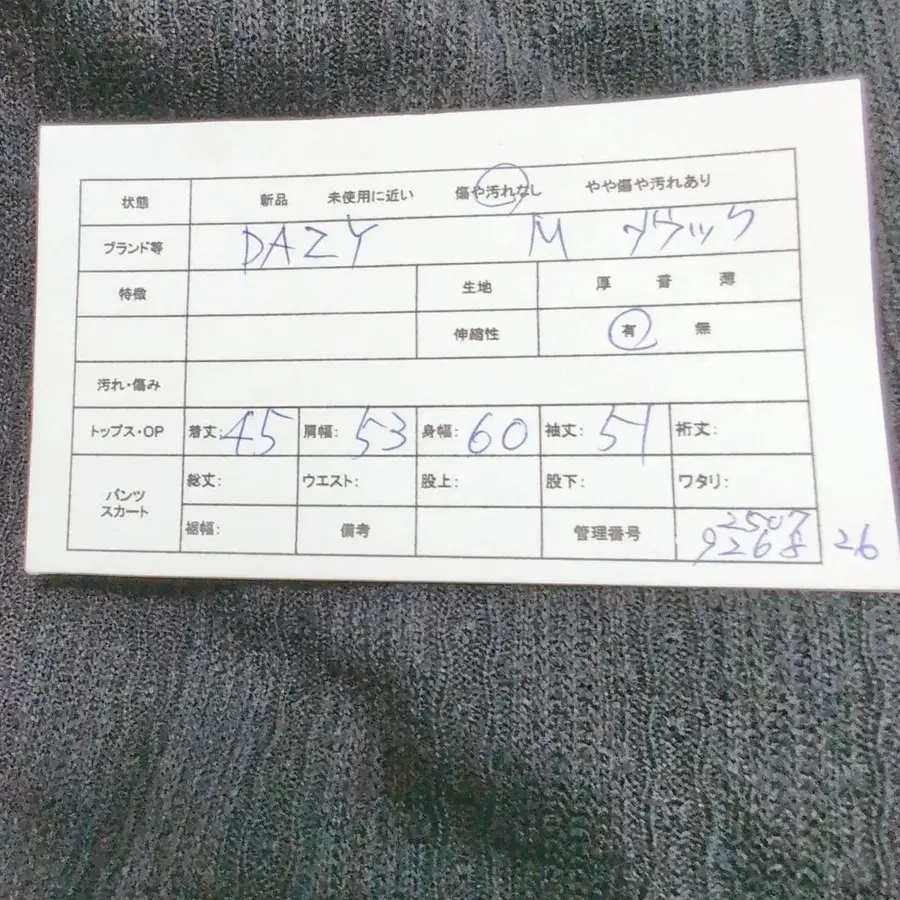 状態 新品 未使用に近い 傷や汚れなし やや傷や汚れあり
ブランド等 DAZY M ブラック
特徴 生地 厚 普 薄
伸縮性 有 無
汚れ・傷み
トップス・OP 着丈: 45 肩幅: 53 身幅: 60 袖丈: 51 裄丈:
パンツ スカート 総丈: ウエスト: 股上: 股下: ワタリ:
裾幅: 備考 管理番号 2507
9268 26